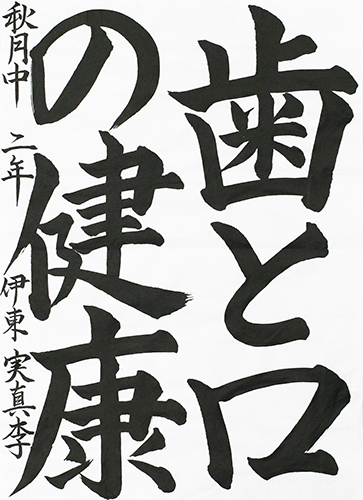 歯と口
の健康
秋月中 二年 伊東 実真李